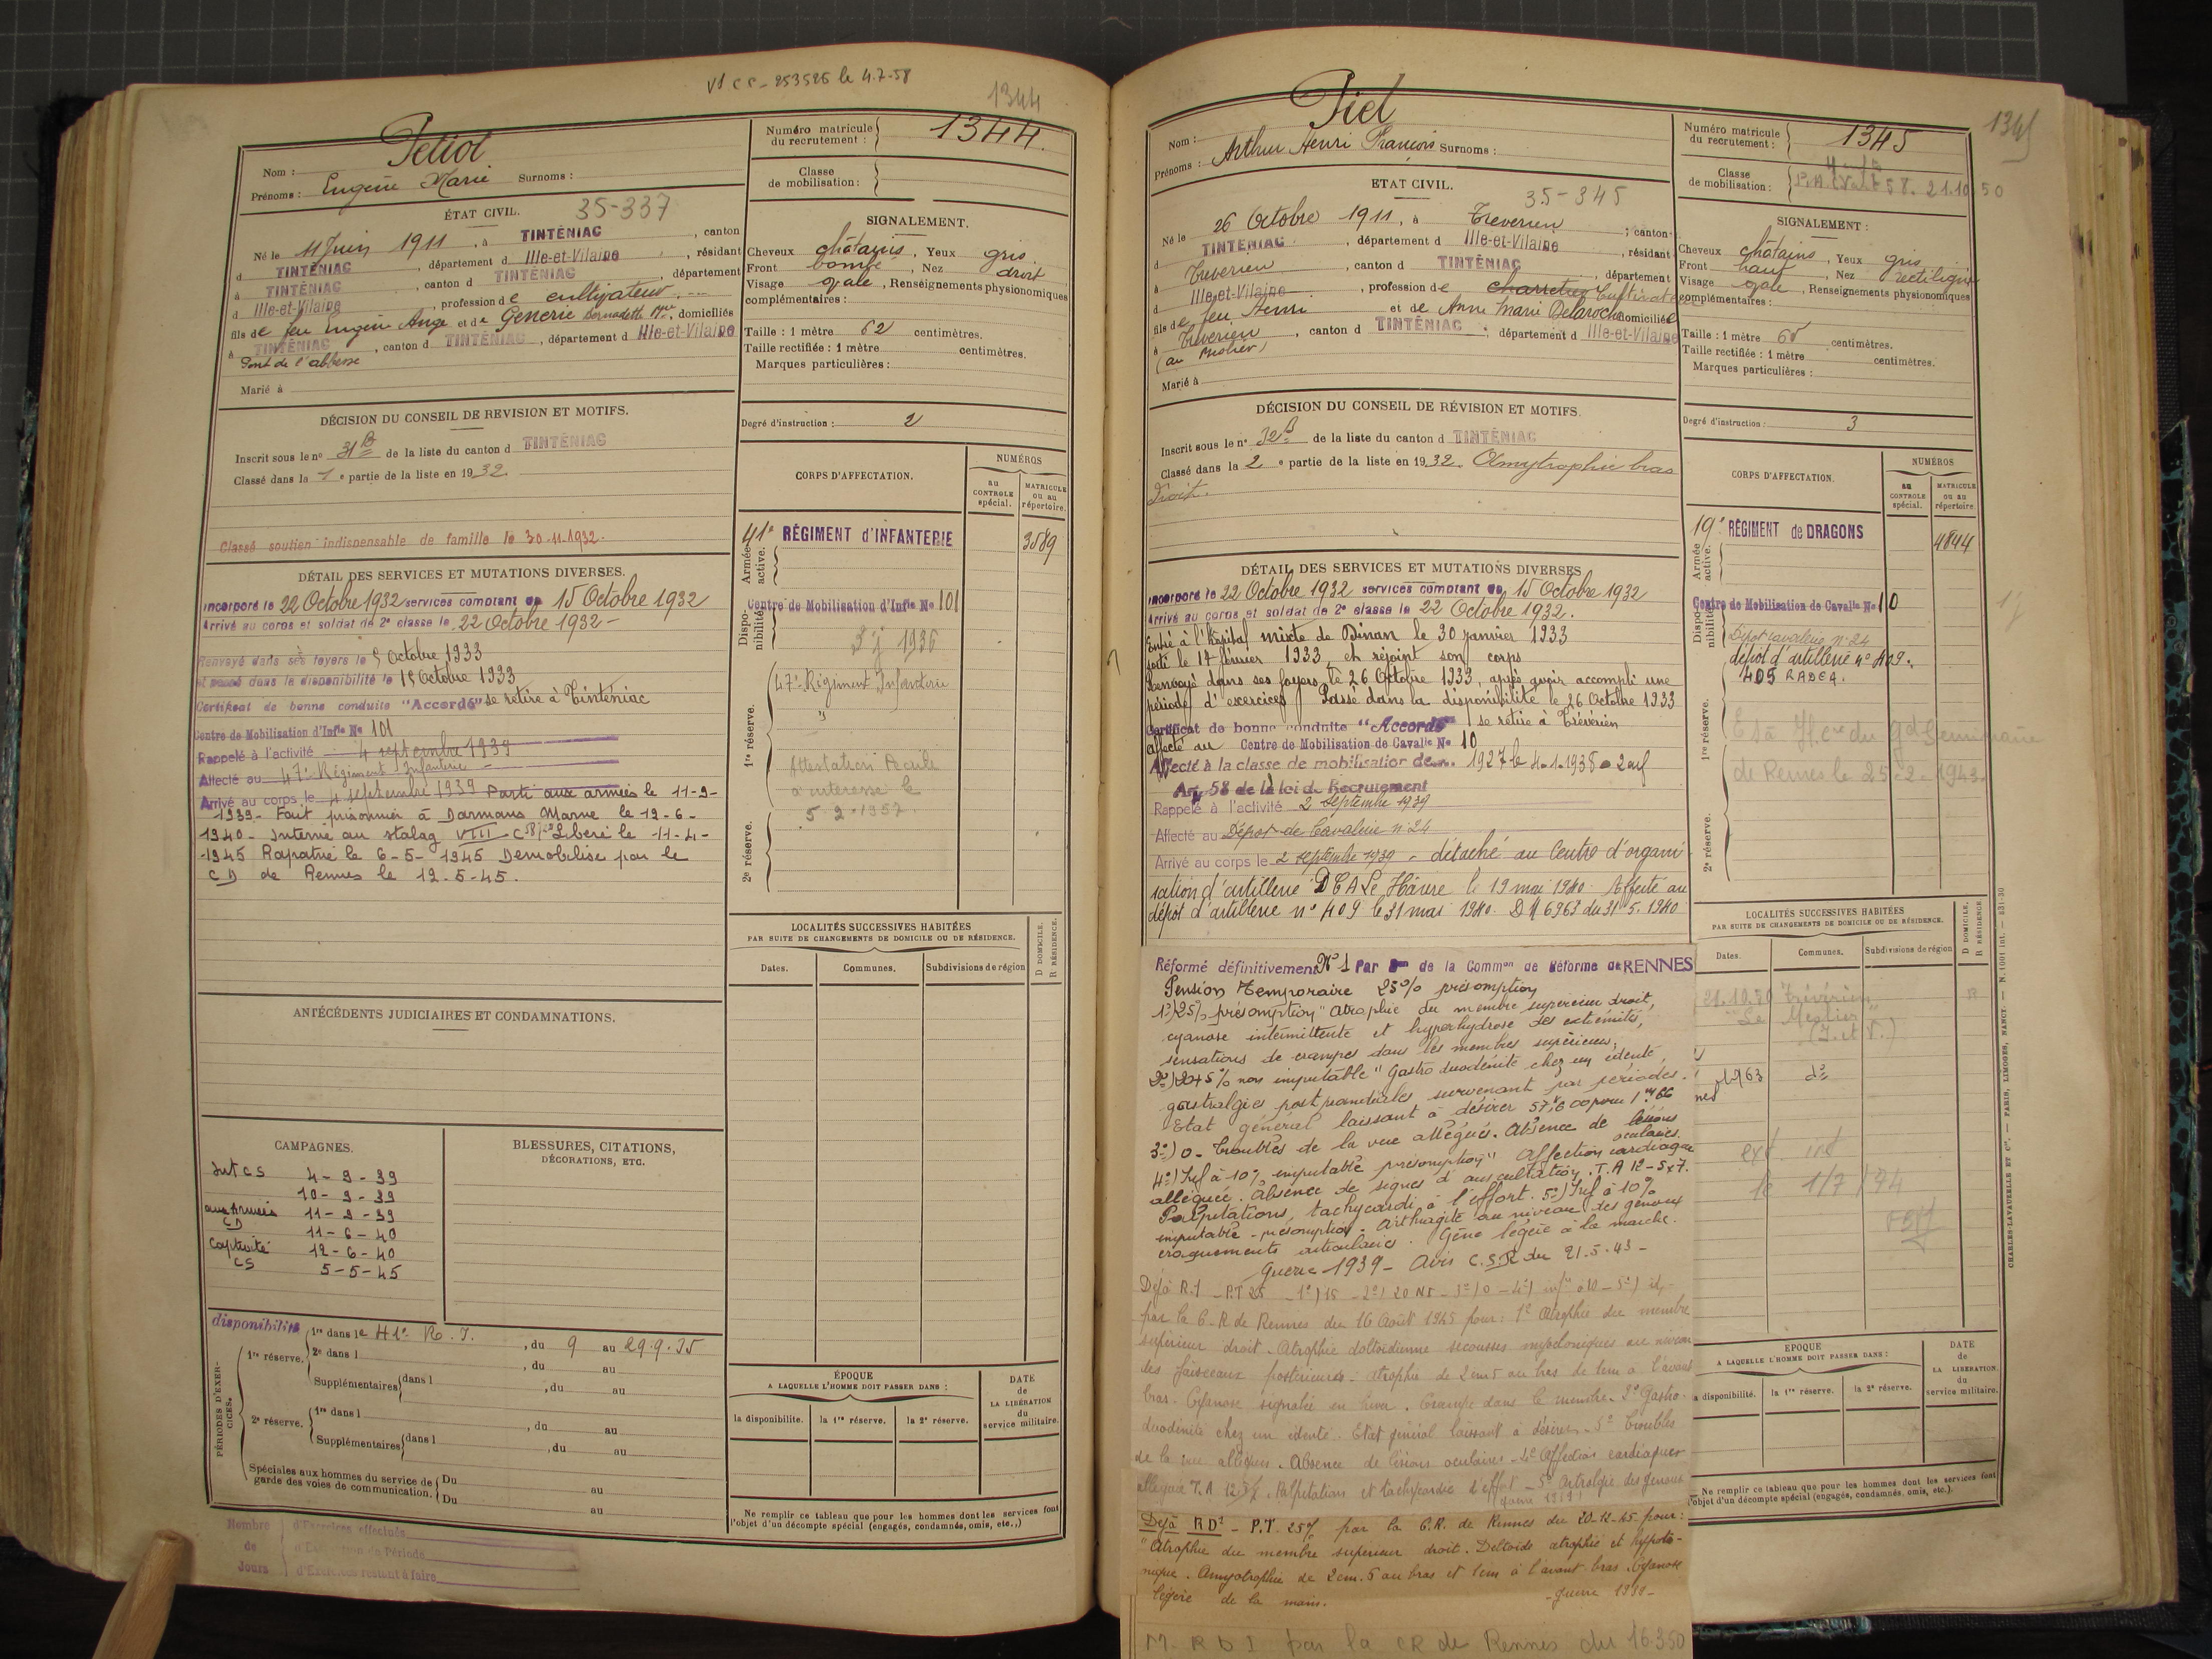 Vt CS - 253526 le 4.7.58
1344
Nom : Petiot
Prénoms : Eugène Marie Surnoms :
Numéro matricule du recrutement : 1344.
Classe de mobilisation :
ÉTAT CIVIL. 35-337
Né le 11 Juin 1911, à TINTÉNIAC, canton
d TINTÉNIAC, département d Ille-et-Vilaine, résidant
à TINTÉNIAC, canton d TINTÉNIAC, département
d Ille-et-Vilaine, profession de cultivateur
fils de feu Eugène Ange et de Generie Bernadette Mme, domiciliés
à TINTÉNIAC, canton d TINTÉNIAC, département d Ille-et-Vilaine
Pont de l'abbesse
Marié à
SIGNALEMENT.
Cheveux châtains, Yeux gris.
Front bombé, Nez droit
Visage ovale, Renseignements physionomiques
complémentaires :
Taille : 1 mètre 62 centimètres.
Taille rectifiée : 1 mètre centimètres.
Marques particulières :
Degré d'instruction : 2
DÉCISION DU CONSEIL DE REVISION ET MOTIFS.
Inscrit sous le no 31 B de la liste du canton d TINTÉNIAC
Classé dans la 1e partie de la liste en 1932.
Classé soutien indispensable de famille le 30-11-1932.
DÉTAIL DES SERVICES ET MUTATIONS DIVERSES.
Incorporé le 22 Octobre 1932 services comptant du 15 Octobre 1932
Arrivé au corps et soldat de 2e classe le 22 Octobre 1932 -
Renvoyé dans ses foyers le 5 Octobre 1933
et passé dans la disponibilité le 15 Octobre 1933
Certificat de bonne conduite "Accordé" se retire à Tinténiac
Centre de Mobilisation d'Infie No 101
Rappelé à l'activité 4 septembre 1939
Affecté au 47e Régiment Infanterie
Arrivé au corps le 4 septembre 1939 Parti aux armées le 11-9-
1939- Fait prisonnier à Dormans Marne le 12-6-
1940- Interné au stalag VIII C Libéré le 11-4-
1945 Rapatrié le 6-5-1945 Démobilisé par le
CD de Rennes le 12-5-45.
CORPS D'AFFECTATION.
NUMÉROS
au CONTROLE spécial.
MATRICULE ou au répertoire.
Armée active.
41e RÉGIMENT d'INFANTERIE 3589
Disponibilité
Centre de Mobilisation d'Infie No 101
1936
1re réserve.
47e Régiment Infanterie
"
Attestation
a interessé le
5-2-1957
2e réserve.
ANTÉCÉDENTS JUDICIAIRES ET CONDAMNATIONS.
LOCALITÉS SUCCESSIVES HABITÉES
PAR SUITE DE CHANGEMENTS DE DOMICILE OU DE RÉSIDENCE.
Dates. Communes. Subdivisions de région
D DOMICILE. R RÉSIDENCE.
CAMPAGNES.
Int CS 4-9-39
10-9-39
aux Armées 11-9-39
CD 11-6-40
Captivité 12-6-40
CS 5-5-45
BLESSURES, CITATIONS,
DÉCORATIONS, ETC.
disponibilité
PÉRIODES D'EXERCICES.
1re réserve. 1re dans le 41e R.I., du 9 au 29.9.35
2e dans l, du au
Supplémentaires dans l, du au
2e réserve. 1re dans l, du au
Supplémentaires dans l, du au
Spéciales aux hommes du service de garde des voies de communication. Du au
Du au
ÉPOQUE
A LAQUELLE L'HOMME DOIT PASSER DANS :
la disponibilité. la 1re réserve. la 2e réserve.
DATE de LA LIBÉRATION du service militaire.
Ne remplir ce tableau que pour les hommes dont les services font
l'objet d'un décompte spécial (engagés, condamnés, omis, etc.,)
Nombre de Jours
d'Exercices effectués
d'Exercices restant à faire
1345
Nom : Piel
Prénoms : Arthur Henri François Surnoms :
Numéro matricule du recrutement : 1345
Classe de mobilisation : 58. 21.10.50
ETAT CIVIL. 35-345
Né le 26 Octobre 1911, à Treverien, canton
d TINTÉNIAC, département d Ille-et-Vilaine, résidant
à Treverien, canton d TINTÉNIAC, département
d Ille-et-Vilaine, profession de charretier Cultivateur
fils de feu Henri et de Anne Marie Delaroche domiciliée
à Treverien, canton d TINTÉNIAC, département d Ille-et-Vilaine
(au Meslier)
Marié à
SIGNALEMENT :
Cheveux châtains, Yeux gris
Front haut, Nez rectiligne
Visage ovale, Renseignements physionomiques
complémentaires :
Taille : 1 mètre 65 centimètres.
Taille rectifiée : 1 mètre centimètres.
Marques particulières :
Degré d'instruction : 3
DÉCISION DU CONSEIL DE RÉVISION ET MOTIFS.
Inscrit sous le no 32 B de la liste du canton d TINTÉNIAC
Classé dans la 2e partie de la liste en 1932. Amyotrophie bras
droit.
DÉTAIL DES SERVICES ET MUTATIONS DIVERSES
Incorporé le 22 Octobre 1932 services comptant du 15 Octobre 1932
Arrivé au corps et soldat de 2e classe le 22 Octobre 1932.
Entré à l'hôpital mixte de Dinan le 30 janvier 1933
sorti le 17 février 1933 et rejoint son corps
Renvoyé dans ses foyers le 26 Octobre 1933, après avoir accompli une
période d'exercices Passé dans la disponibilité le 26 Octobre 1933
Certificat de bonne conduite "Accordé" se retire à Trévérien
Affecté au Centre de Mobilisation de Cavalie No 10
Affecté à la classe de mobilisation de 1927 le 4-1-1938 - 2 enf
Art 58 de la loi de Recrutement
Rappelé à l'activité 2 septembre 1939
Affecté au Dépot de Cavalerie n° 24
Arrivé au corps le 2 septembre 1939 - détaché au Centre d'organi
sation d'artillerie DCA Le Hâvre le 19 mai 1940. Affecté au
dépôt d'artillerie n° 409 le 31 mai 1940. D M 6963 du 31.5.1940
CORPS D'AFFECTATION.
NUMÉROS
au CONTROLE spécial.
MATRICULE ou au répertoire.
Armée active.
19e RÉGIMENT de DRAGONS 4844
Disponibilité
Centre de Mobilisation de Cavalie No 10
Dépot cavalerie n° 24
dépôt d'artillerie n° 409.
405 RADCA.
1re réserve.
du gd Séminaire
de Rennes le 25-2-1943
2e réserve.
Réformé définitivement N° 1 Par de la Common de Réforme de RENNES
Pension Temporaire 25% présomption
1°) 25% présomption "Atrophie du membre supérieur droit,
cyanose intermittente et hyperhydrose des extrémités,
sensations de crampes dans les membres supérieurs;
2°) 20+5% non imputable "Gastro duodénite chez un édenté,
gastralgies postprandiales survenant par périodes.
Etat général laissant à désirer 57k,600 pour 1m66
3°) 0- Troubles de la vue allégués. Absence de lésions oculaires.
4°) Inf à 10% imputable présomption" Affection cardiaque
alléguée. Absence de signes d'auscultation. T.A 12-5x7.
Palpitations, tachycardie à l'effort. 5°) Inf à 10%
imputable - présomption. Arthralgie au niveau des genoux
craquements articulaires. Gêne légère à la marche.
Guerre 1939 - Avis C.S.R du 21-5-43 -
Déjà R.1 - P.T 25 - 1°) 15 - 2°) 20 NI - 3°) 0 - 4°) inf à 10 - 5°) id
par la C.R de Rennes du 16 Août 1945 pour : 1° Atrophie du membre
supérieur droit. Atrophie deltoïdienne secousses myocloniques au niveau
des faisceaux postérieurs - atrophie de 2cm5 au bras de 1cm à l'avant
bras. Cyanose signalée en hiver. Crampe dans le membre. 2° Gastro-
duodénite chez un édenté. Etat général laissant à désirer - 3° Troubles
de la vue allégués. Absence de lésions oculaires - 4° Affection cardiaque
alléguée T.A 12. Palpitations et tachycardie d'effort - 5° Artralgie des genoux
guerre 1939
Déjà RD1 - P.T. 25% par la C.R. de Rennes du 20-12-45 pour :
"Atrophie du membre supérieur droit. Deltoïde atrophié et hypoto-
nique. Amyotrophie de 2cm.5 au bras et 1cm à l'avant bras. Cyanose
légère de la main. - guerre 1939 -
M. R D I par la CR de Rennes du 16.3.50
LOCALITÉS SUCCESSIVES HABITÉES
PAR SUITE DE CHANGEMENTS DE DOMICILE OU DE RÉSIDENCE.
Dates. Communes. Subdivisions de région
D DOMICILE. R RÉSIDENCE.
21.10.50 Trévérien
"Le Meslier"
(I. et V.)
1963 do
1/7/94
EPOQUE
A LAQUELLE L'HOMME DOIT PASSER DANS :
la disponibilité. la 1re réserve. la 2e réserve.
DATE de LA LIBÉRATION du service militaire.
Ne remplir ce tableau que pour les hommes dont les services font
l'objet d'un décompte spécial (engagés, condamnés, omis, etc.).
CHARLES-LAVAUZELLE ET Cie. — PARIS, LIMOGES, NANCY. — N. 1001 int. — 831-30